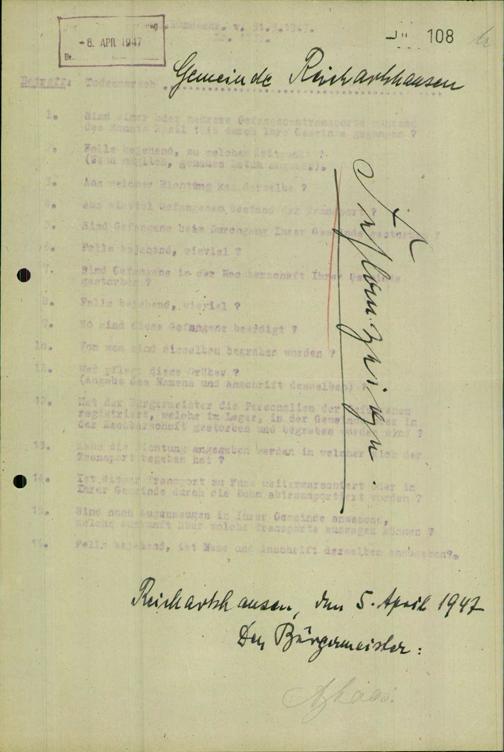 -8. APR 1947
108
Betrifft: Todesmarsch Gemeinde Reichartshausen
1. Sind einer oder mehrere Gefangenentransporte während
des Monats April 1945 durch Ihre Gemeinde gegangen ?
Falls bejahend, zu welchem Zeitpunkt ?
(Wenn möglich, genaues Datum angeben).
3. Aus welcher Richtung kam derselbe ?
Aus wieviel Gefangenen bestand der Transport ?
Sind Gefangene beim Durchgang Ihrer Gemeinde gestorben ?
6. Falls bejahend, wieviel ?
7. Sind Gefangene in der Nachbarschaft Ihrer Gemeinde
gestorben ?
8. Falls bejahend, wieviel ?
9. Wo sind diese Gefangene beerdigt ?
10. Von wem sind dieselben begraben worden ?
11. Wer pflegt diese Gräber ?
(Angabe des Namens und Anschrift desselben)
12. Hat der Bürgermeister die Personalien der
registriert, welche im Lager, in der Gemeinde oder in
der Nachbarschaft gestorben und begraben worden sind ?
13. Kann die Richtung angegeben werden in welcher sich der
Transport begeben hat ?
14. Ist dieser Transport zu Fuss weitermarschiert oder in
Ihrer Gemeinde durch die Bahn abtransportiert worden ?
15. Sind noch Augenzeugen in Ihrer Gemeinde anwesend,
welche Auskunft über solche Transporte aussagen können ?
16. Falls bejahend, ist Name und Anschrift derselben anzugeben ?
Fehlanzeige.
Reichartshausen, den 5. April 1947
Der Bürgermeister: